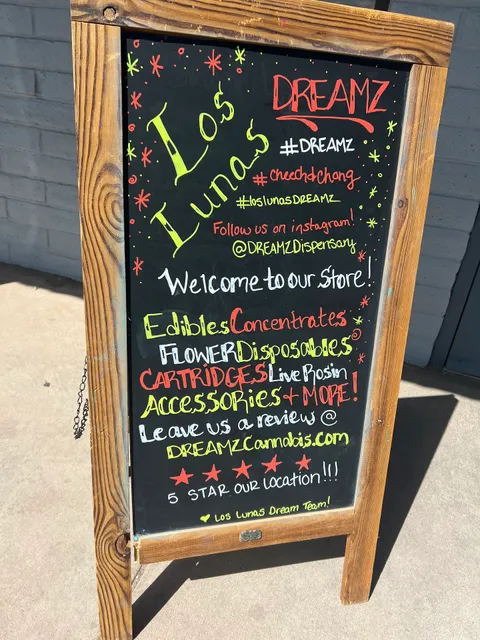 Los Lunas
DREAMZ
#DREAMZ
#Cheech&Chong
#loslunasDREAMZ
Follow us on instagram!
@DREAMZDispensary
Welcome to our Store!
Edibles Concentrates
FLOWER Disposables
CARTRIDGES Live Rosin
ACCESSORIES + MORE!
Leave us a review @
DREAMZCannabis.com
5 STAR OUR LOCATION!!!
Los Lunas Dream Team!